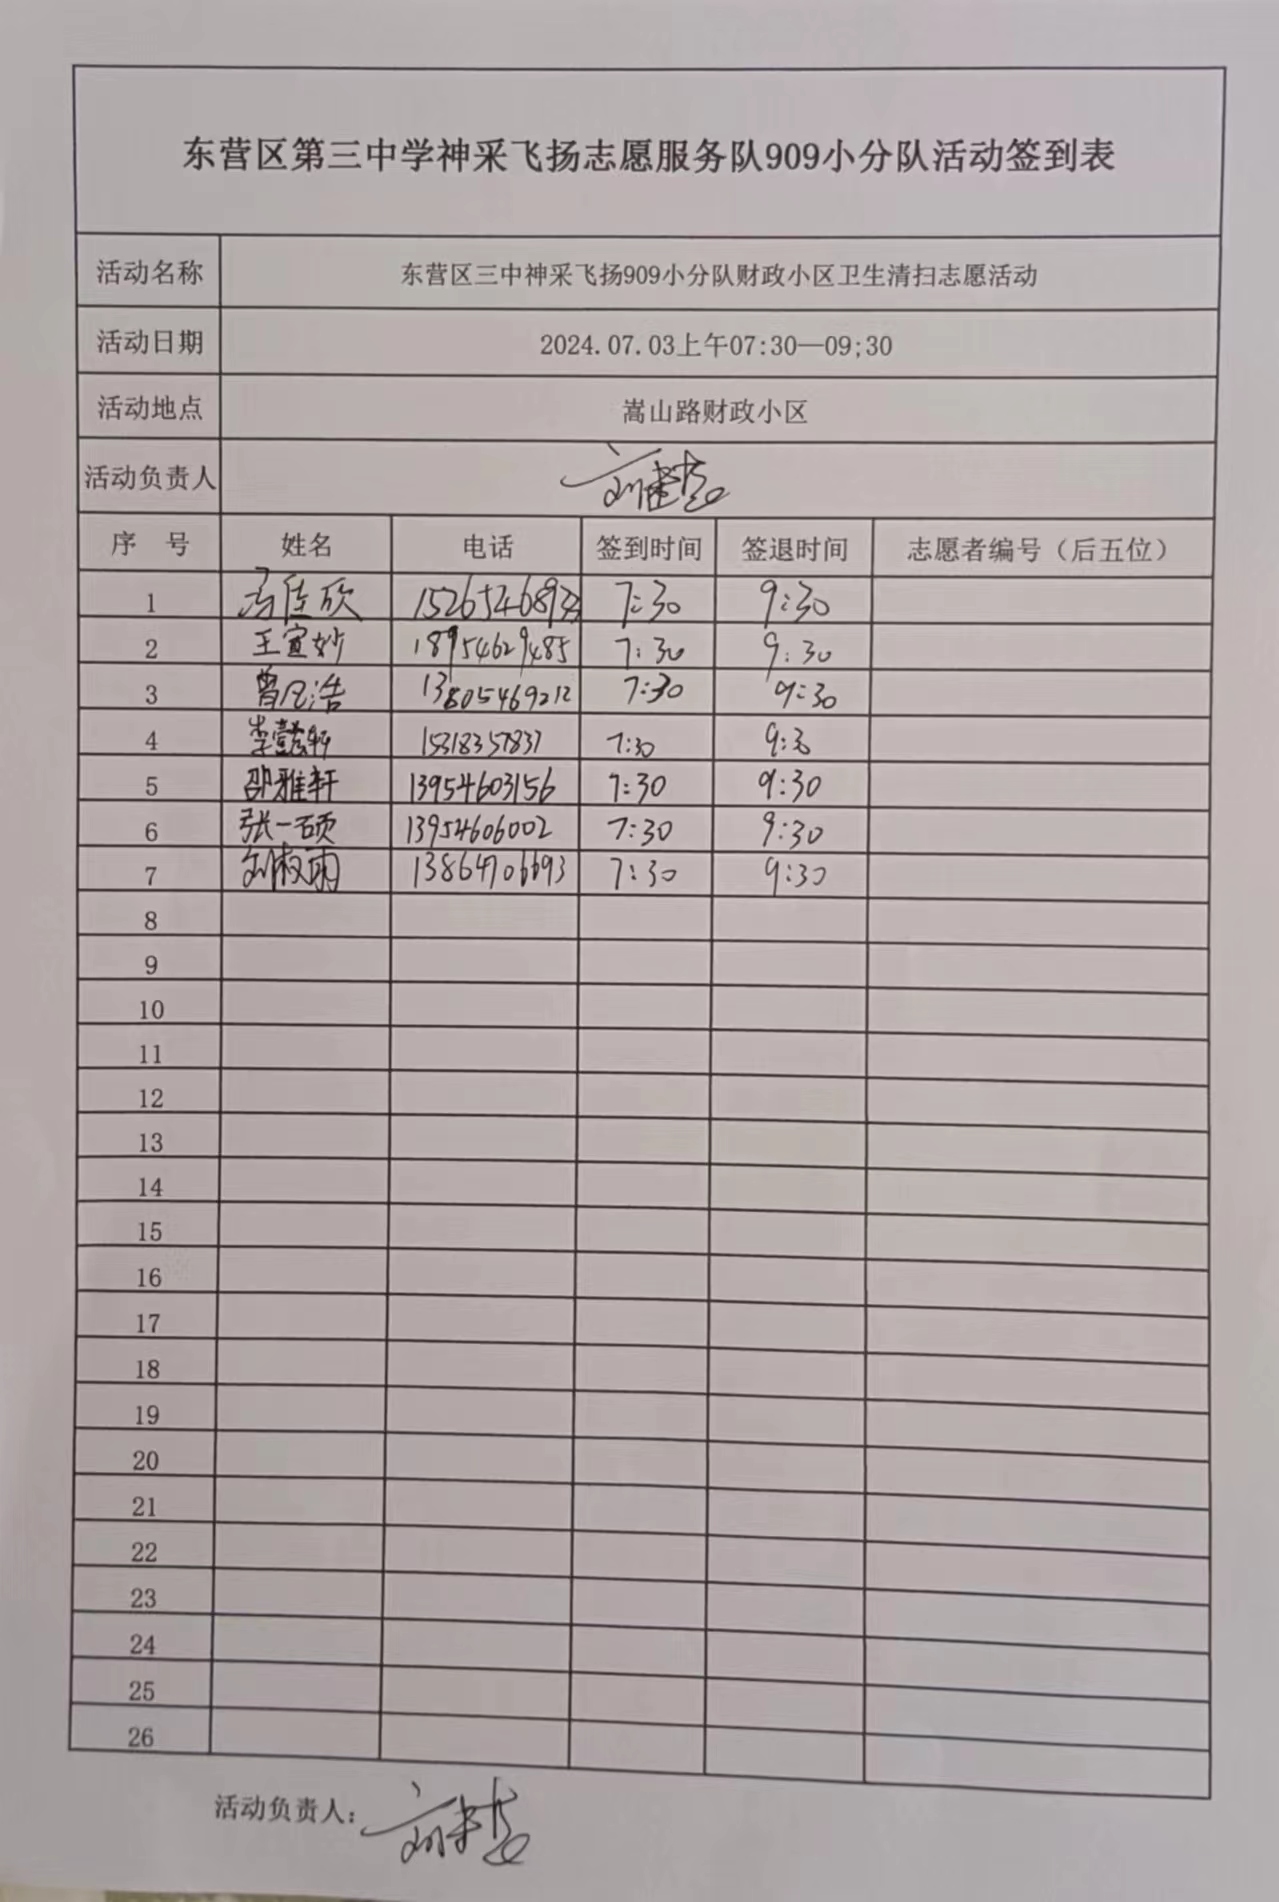 东营区第三中学神采飞扬志愿服务队909小分队活动签到表
活动名称 东营区三中神采飞扬909小分队财政小区卫生清扫志愿活动
活动日期 2024.07.03上午07:30—09;30
活动地点 嵩山路财政小区
活动负责人
序 号 姓名 电话 签到时间 签退时间 志愿者编号（后五位）
1 冯佳欣 7:30 9:30
2 王宣妙 18954629485 7:30 9:30
3 曾凡浩 13805469212 7:30 9:30
4 李懿轩 15318357837 7:30 9:30
5 邵雅轩 13954603156 7:30 9:30
6 张一硕 13954606002 7:30 9:30
7 刘淑雨 13864706693 7:30 9:30
8
9
10
11
12
13
14
15
16
17
18
19
20
21
22
23
24
25
26
活动负责人：